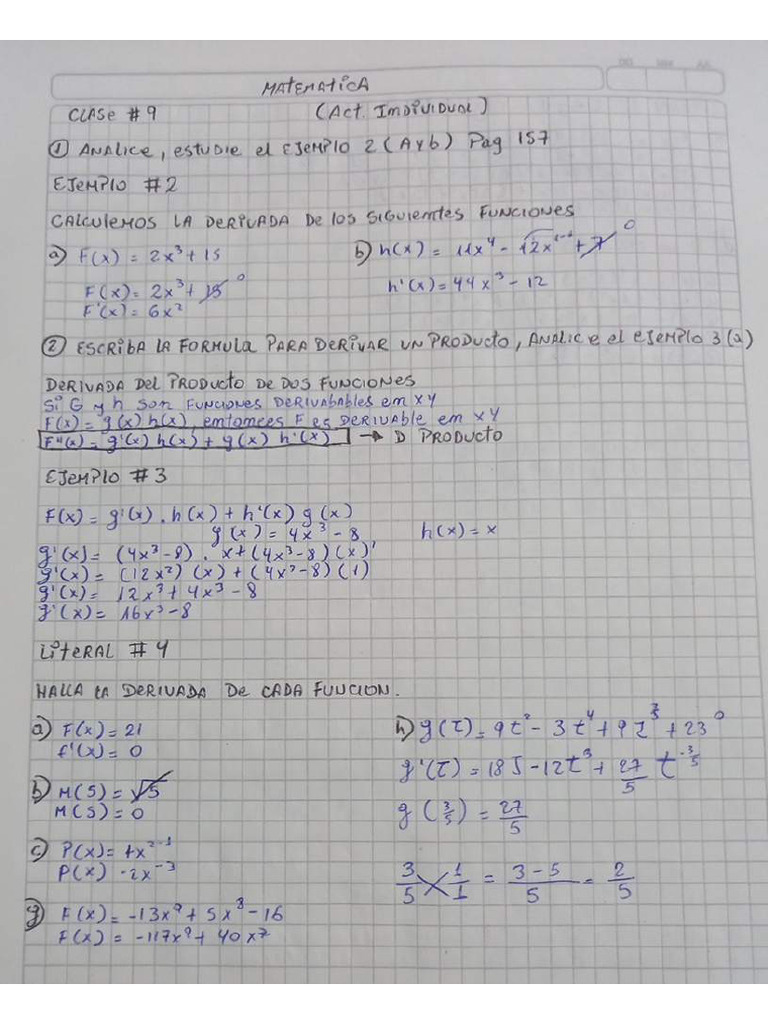 MATEMATICA
CLASE # 9 (ACT. INDIVIDUAL)
① ANALICE, ESTUDIE EL EJEMPLO 2 (A y b) Pag 157
EJEMPLO #2
CALCULEMOS LA DERIVADA DE LOS SIGUIENTES FUNCIONES
a) F(x) = 2x³ + 15
F(x) = 2x³ + 15⁰
F'(x) = 6x²
b) h(x) = 11x⁴ - 12x¹⁻¹ + 7⁰
h'(x) = 44x³ - 12
② ESCRIBA LA FORMULA PARA DERIVAR UN PRODUCTO, ANALICE el EJEMPLO 3(a)
DERIVADA DEL PRODUCTO DE DOS FUNCIONES
Si G y h SON FUNCIONES DERIVABABLES EM XY
F(x) = g(x) h(x), entomces F es DERIVABLE em XY
F''(x) = g'(x) h(x) + g(x) h'(x) → D PRODUCTO
EJEMPLO #3
F(x) = g'(x) . h(x) + h'(x) g(x)
g(x) = 4x³ - 8 h(x) = x
g'(x) = (4x³-8) . x + (4x³-8) (x)'
g'(x) = (12x²) (x) + (4x³-8) (1)
g'(x) = 12x³ + 4x³ - 8
g'(x) = 16x³ - 8
LITERAL # 4
HALLA LA DERIVADA DE CADA FUNCION.
a) F(x) = 21
f'(x) = 0
b) M(5) = √5
M(5) = 0
c) P(x) = +x²⁻¹
P(x) -2x⁻³
g) F(x) = -13x⁹ + 5x⁸ - 16
F(x) = -117x⁹ + 40x⁷
h) g(t) = 9t² - 3t⁴ + 9t + 23⁰
g'(t) = 18 - 12t³ + 27/5 t
g (3/5) = 27/5
3/5 1/1 = 3-5/5 = 2/5